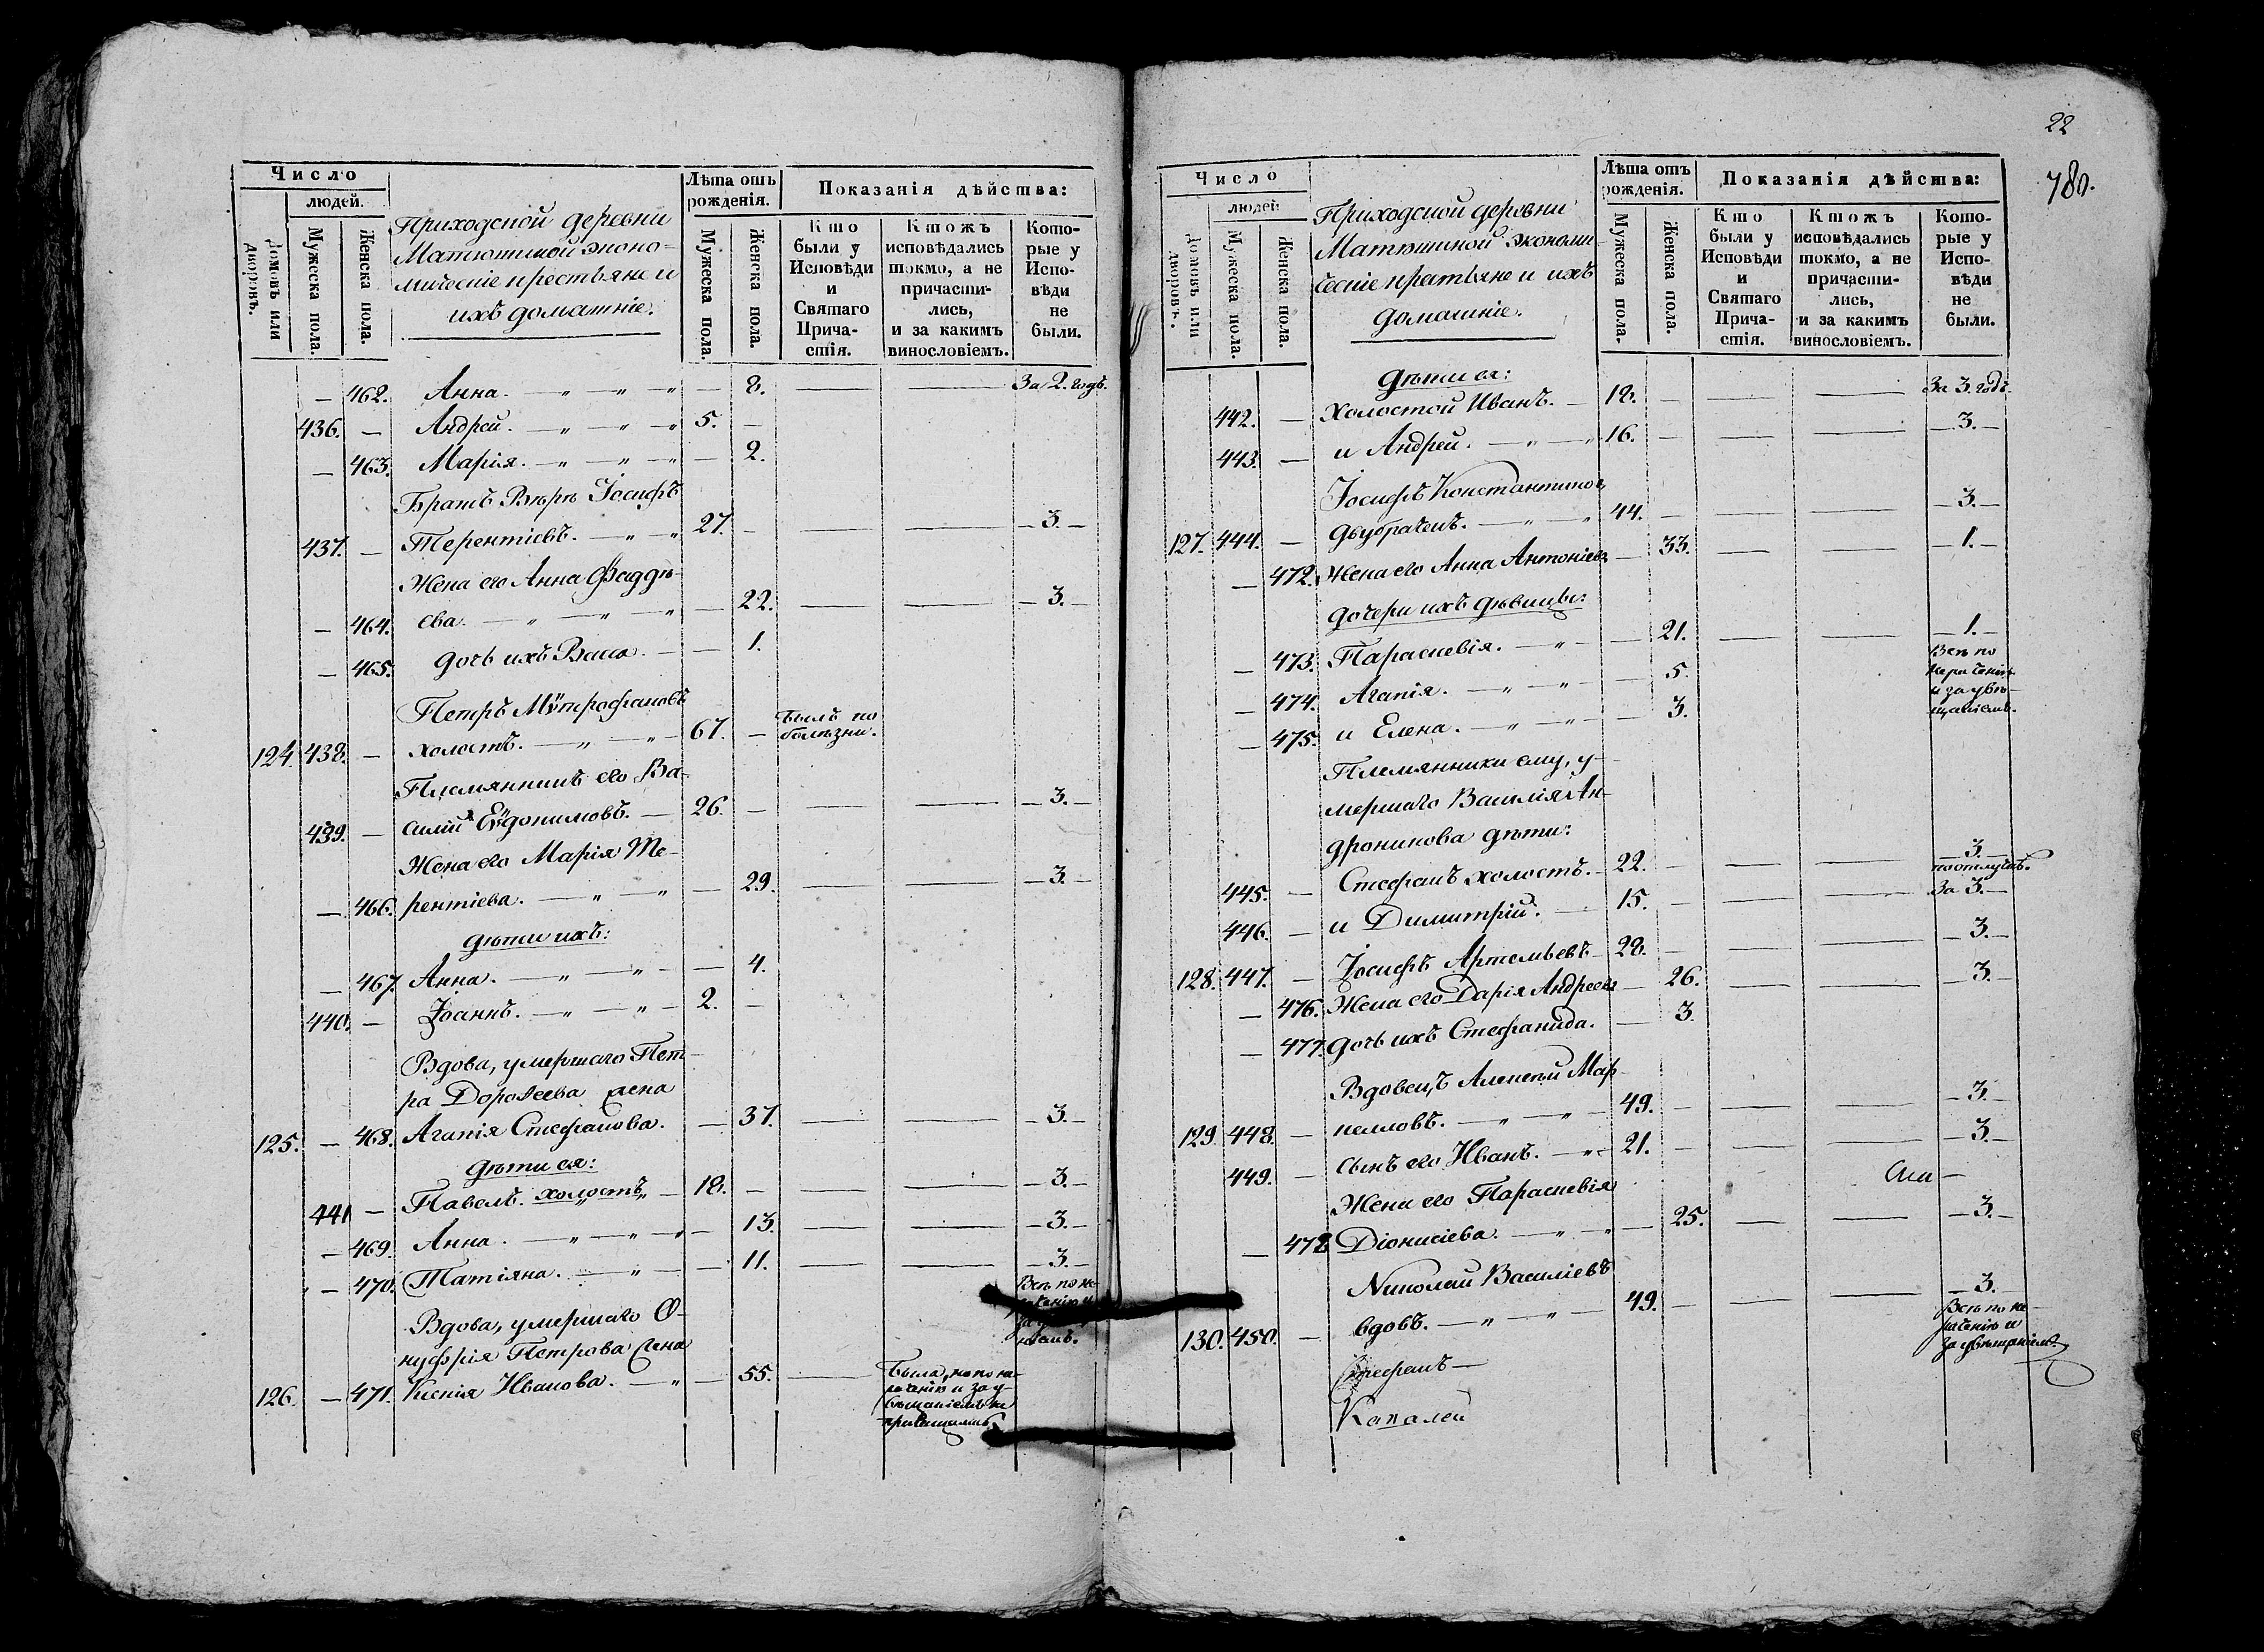 Число
людей.
Домовъ или дворовъ.
Мужеска пола.
Женска пола.
Приходской деревни
Матютиной эконо-
мическіе крестьяне и
ихъ домашніе.
Лѣта отъ рожденія.
Мужеска пола.
Женска пола.
Показанія дѣйства:
Кто были у Исповѣди и Святаго Прича-стія.
Ктожъ исповѣдались токмо, а не причасти-лись, и за какимъ винословіемъ.
Кото-рые у Испо-вѣди не были.
— 462. Анна. — „ — „ — „ — 8. — — За 2. годъ.
436. — Андрей. — „ — „ — „ 5. —
— 463. Марія. — „ — „ — „ — 2.
Братъ Іосифъ
437. — Терентіевъ. — „ — „ 27. — — — — 3. —
Жена его Анна Фаддѣ-
— 464. ева. — „ — „ — „ — 22. — — — 3. —
— 465. дочь ихъ Васса. — — 1.
Петръ Мѵтрофановъ
124. 438. — холостъ. — „ — „ — 67. — былъ по
болѣзни.
Племянникъ его Ва-
439. — силій Еѵдокимовъ. — 26. — — — — 3. —
Жена его Марія Те-
— 466. рентіева. — „ — „ — 29. — — — 3. —
дѣти ихъ:
— 467. Анна. — „ — „ — — 4.
440. — Іоаннъ. — „ — „ — 2. —
Вдова, умершаго Пет-
ра Дороѳеева жена
125. — 468. Агапія Стефанова. — 37. — — — 3. —
дѣти ея:
441 — Павелъ. холостъ „ — 18. — — — — 3. —
— 469. Анна. — „ — „ — „ — 13. — — — 3. —
— 470. Татіяна. — „ — — 11. — — — 3. —
Всѣ по не-
Вдова, умершаго О-
нуфрія Петрова жена
126. — 471. Ксенія Иванова. — „ — 55. — Была, но по не-
раченію и за у-
вѣщаніемъ не
22
780.
Число
людей
Домовъ или дворовъ.
Мужеска пола.
Женска пола.
Приходской деревни
Матютиной экономи-
ческіе кратьяне и ихъ
домашніе.
Лѣта отъ рожденія.
Мужеска пола.
Женска пола.
Показанія дѣйства:
Кто были у Исповѣди и Святаго Прича-стія.
Ктожъ исповѣдались токмо, а не причасти-лись, и за какимъ винословіемъ.
Кото-рые у Испо-вѣди не были.
дѣти ея:
442. — Холостой Иванъ. — 18. — — — За 3. годъ.
443. — и Андрей. — „ — „ 16. — — — — 3. —
Іосифъ Константинов
127. 444. — двубраченъ. — „ — „ 44. — — — — 3. —
— 472. Жена его Анна Антоніев — 33. — — — 1. —
дочери ихъ дѣвицы:
— 473. Параскевія. — „ — — 21. — — — 1. —
Всѣ по
нераченію
и за увѣ-
щаніемъ.
— 474. Агапія. — „ — „ — 5.
— 475. и Елена. — „ — „ — 3.
Племянники ему, у-
мершаго Василія Ан-
дроникова дѣти:
445. — Стефанъ холостъ. — 22. — — — — 3. —
по отлучкѣ.
446. — и Димитрій. — 15. — — — За 3. —
128. 447. — Іосифъ Артемьевъ — 28. — — — — 3. —
— 476. Жена его Дарія Андреев — 26. — — — 3. —
— 477. дочь ихъ Стефанида. — 3.
Вдовецъ Алексѣй Мар-
129. 448. — келловъ. — „ — „ — 49. — — — — 3. —
449. — сынъ его Иванъ. — „ — 21. — — — — 3. —
Жена его Параскевія
— 478. Діонисіева. — „ — „ — 25. — — — 3. —
Николай Василіевъ
130. 450. — вдовъ. — „ — „ — 49. — — — — 3. —
Всѣ по не-
раченію и
за увѣщаніемъ.
Стефанъ —